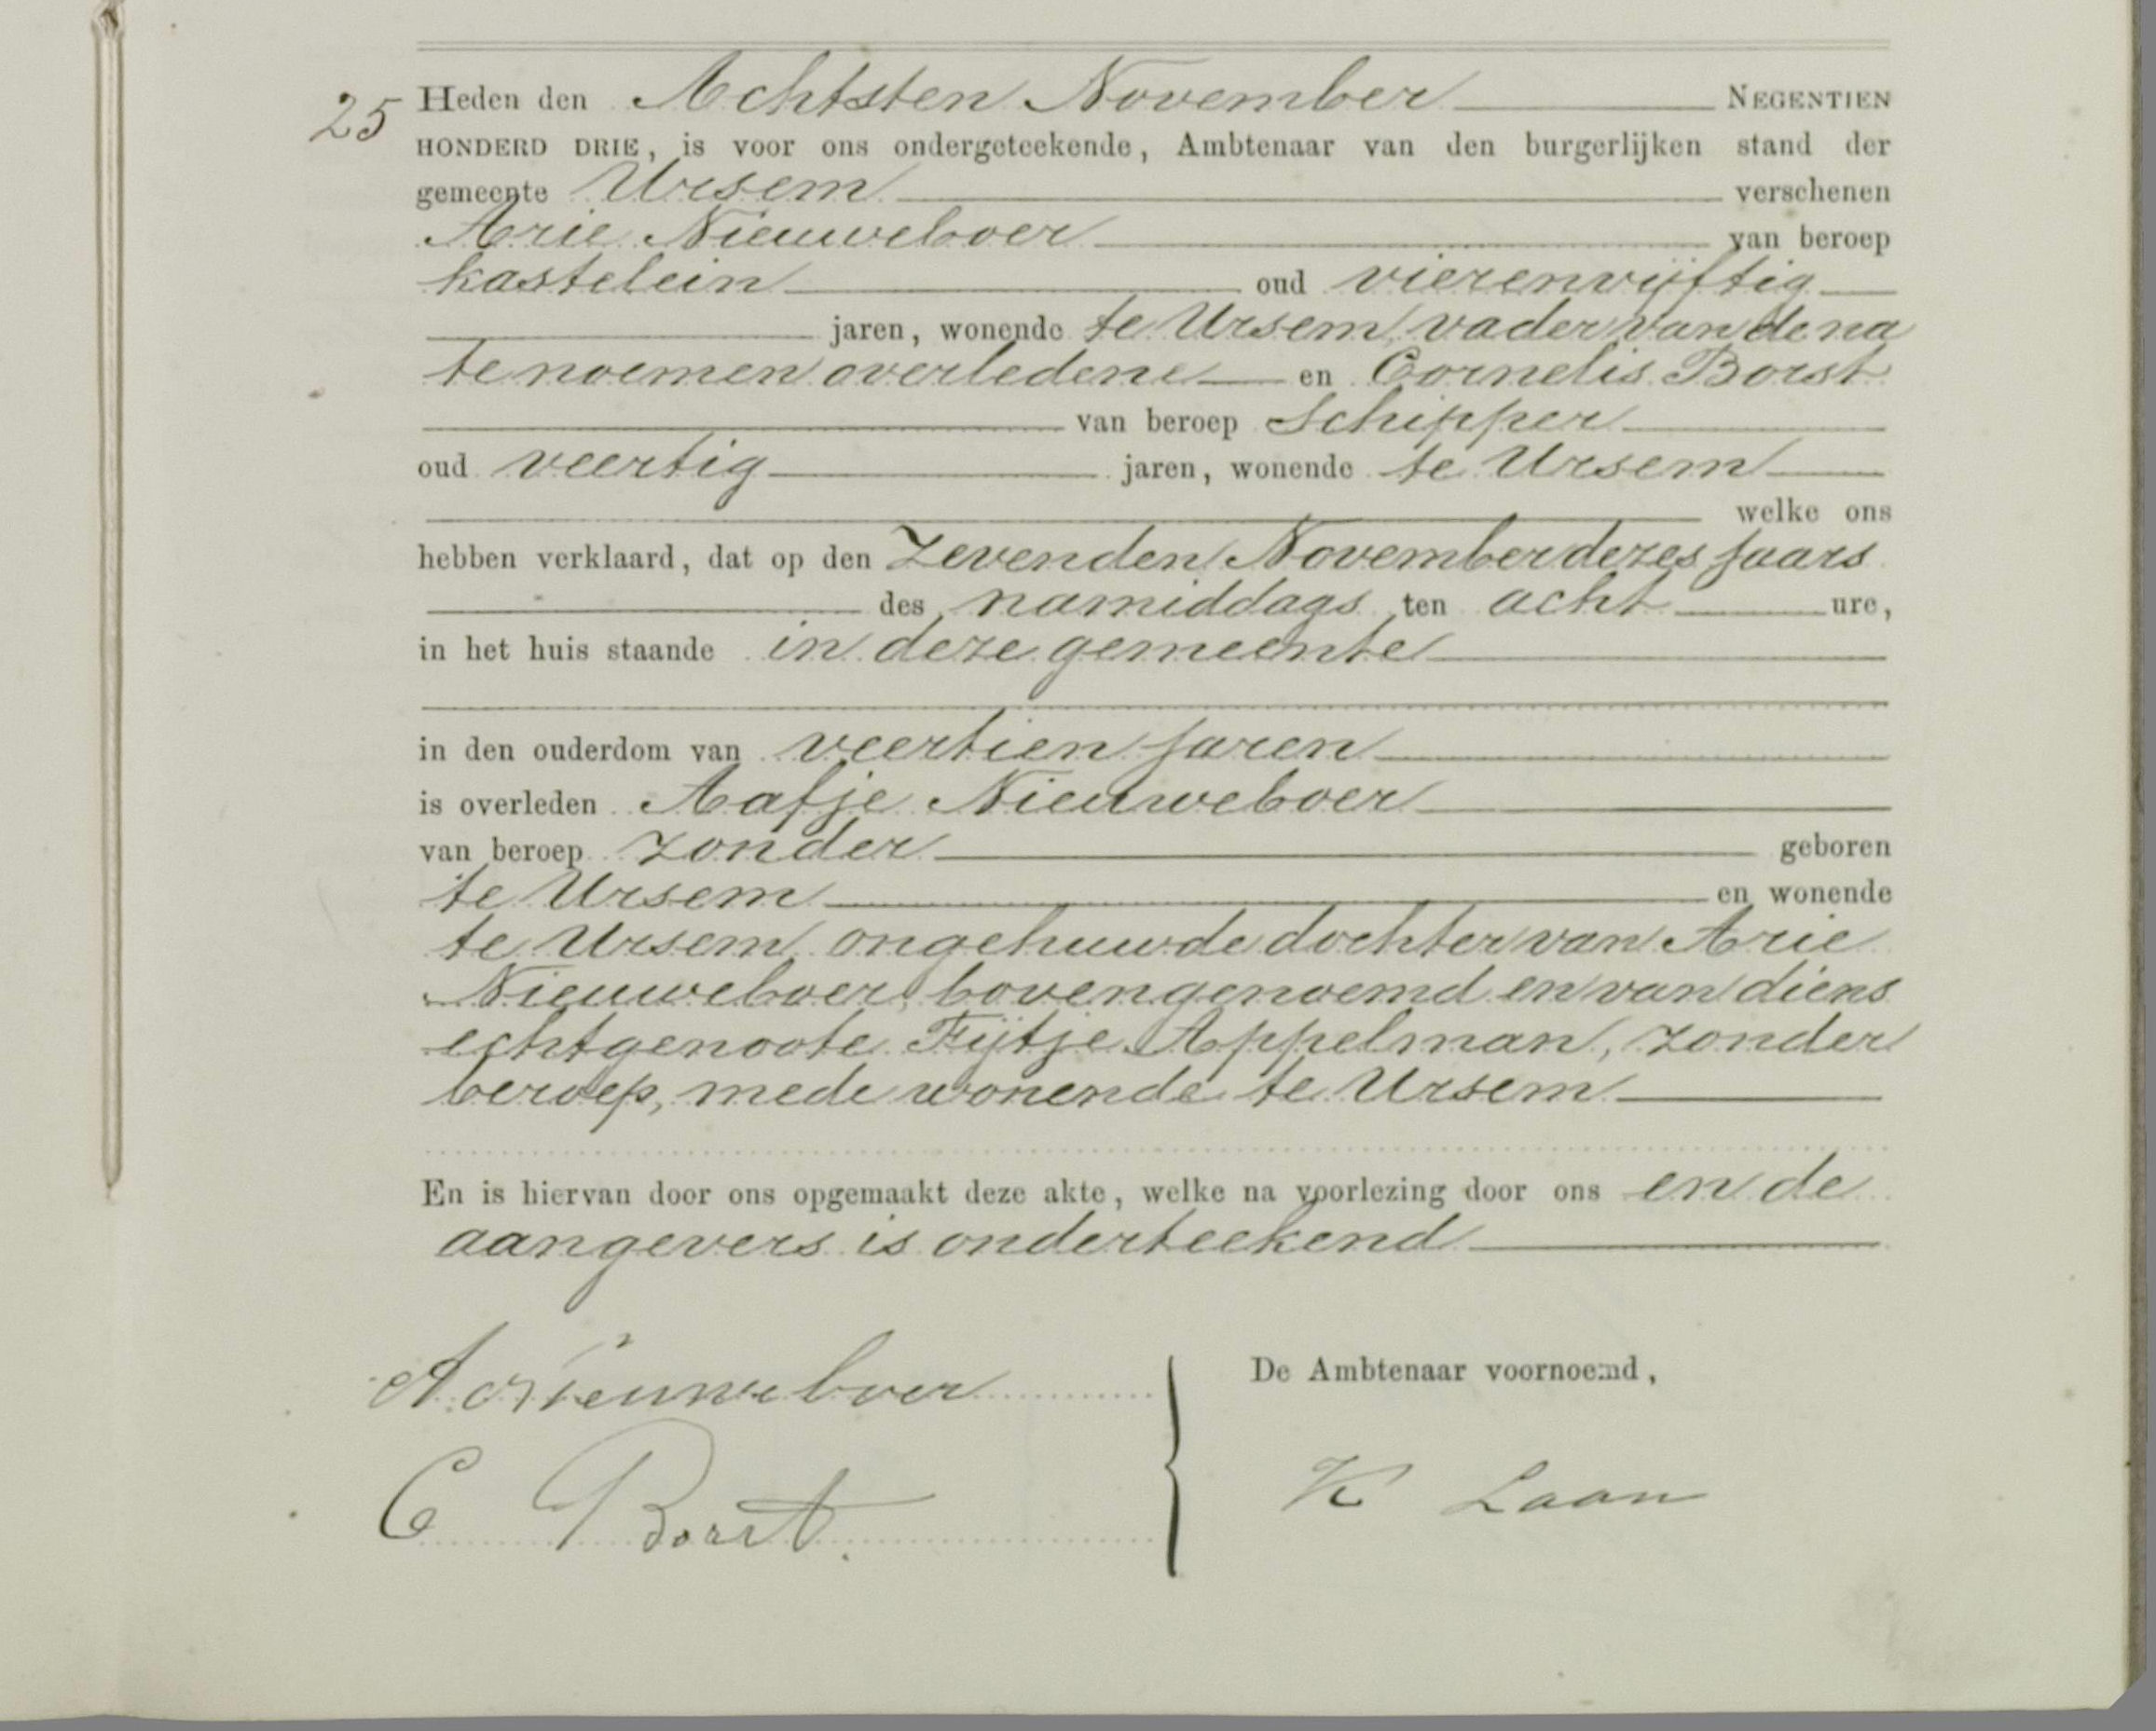 25 Heden den Achtsten November NEGENTIEN
HONDERD DRIE, is voor ons ondergeteekende, Ambtenaar van den burgerlijken stand der
gemeente Ursem verschenen
Arie Nieuweboer van beroep
kastelein oud vierenvijftig
jaren, wonende te Ursem, vader van de na
te noemen overledene en Cornelis Borst
van beroep Schipper
oud veertig jaren, wonende te Ursem
welke ons
hebben verklaard, dat op den Zevenden November dezes jaars
des namiddags ten acht ure,
in het huis staande in deze gemeente
in den ouderdom van veertien jaren
is overleden Aafje Nieuweboer
van beroep zonder geboren
te Ursem en wonende
te Ursem, ongehuwde dochter van Arie
Nieuweboer, bovengenoemd en van diens
echtgenoote Fijtje Appelman, zonder
beroep, mede wonende te Ursem
En is hiervan door ons opgemaakt deze akte, welke na voorlezing door ons en de
aangevers is onderteekend
A. Nieuweboer
De Ambtenaar voornoemd,
C Borst.
K Laan